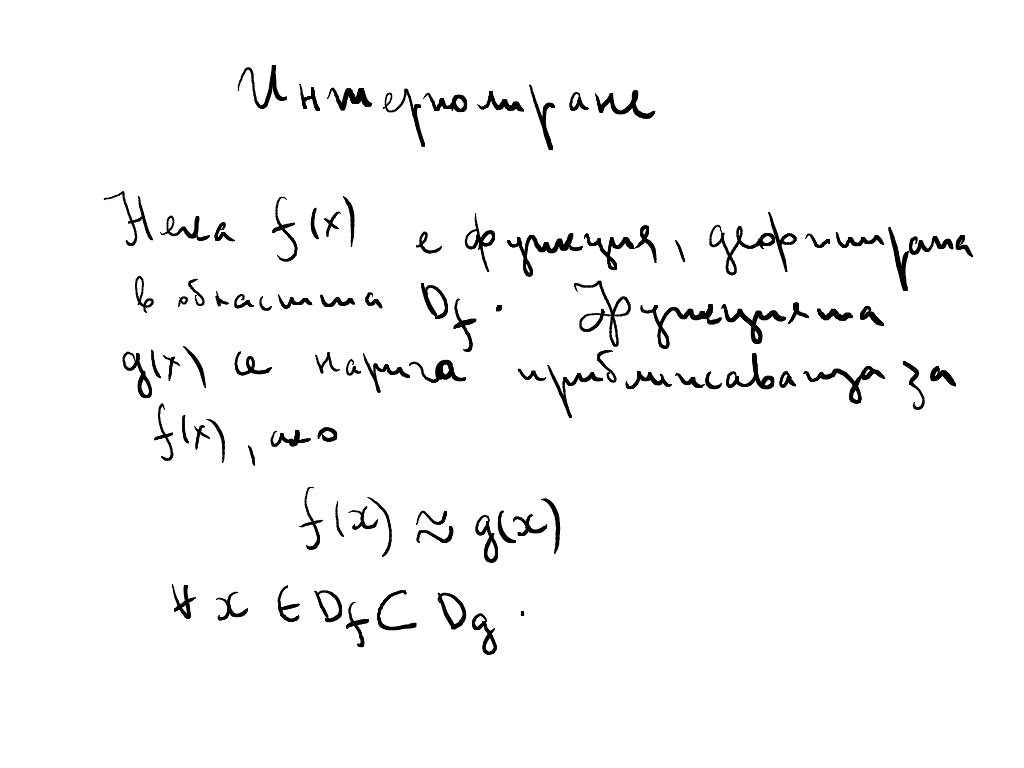 Интерполиране
Нека f(x) е функция, дефинирана
в областта D_f. Функцията
g(x) се нарича приближаваща за
f(x), ако
f(x) ≈ g(x)
∀ x ∈ D_f ⊂ D_g.